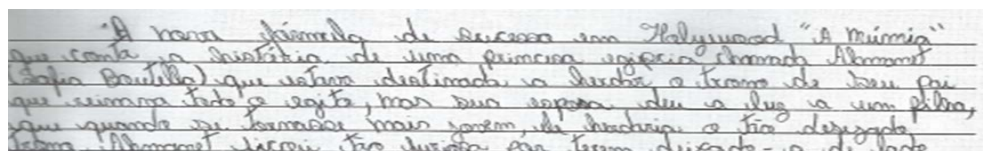 A nova fórmula de sucesso em Holywood "A múmia"
que conta a história de uma princesa egipcia chamada Ahmanet
(Sofia Boutilla) que estava destinada a herdar o trono de seu pai
que reinava todo o egito, mas sua esposa deu a luz a um filho,
que quando se tornasse mais jovem, ele herdaria o tão desejado
trono. Ahmanet ficou tão furiosa por terem deixado-a de lado